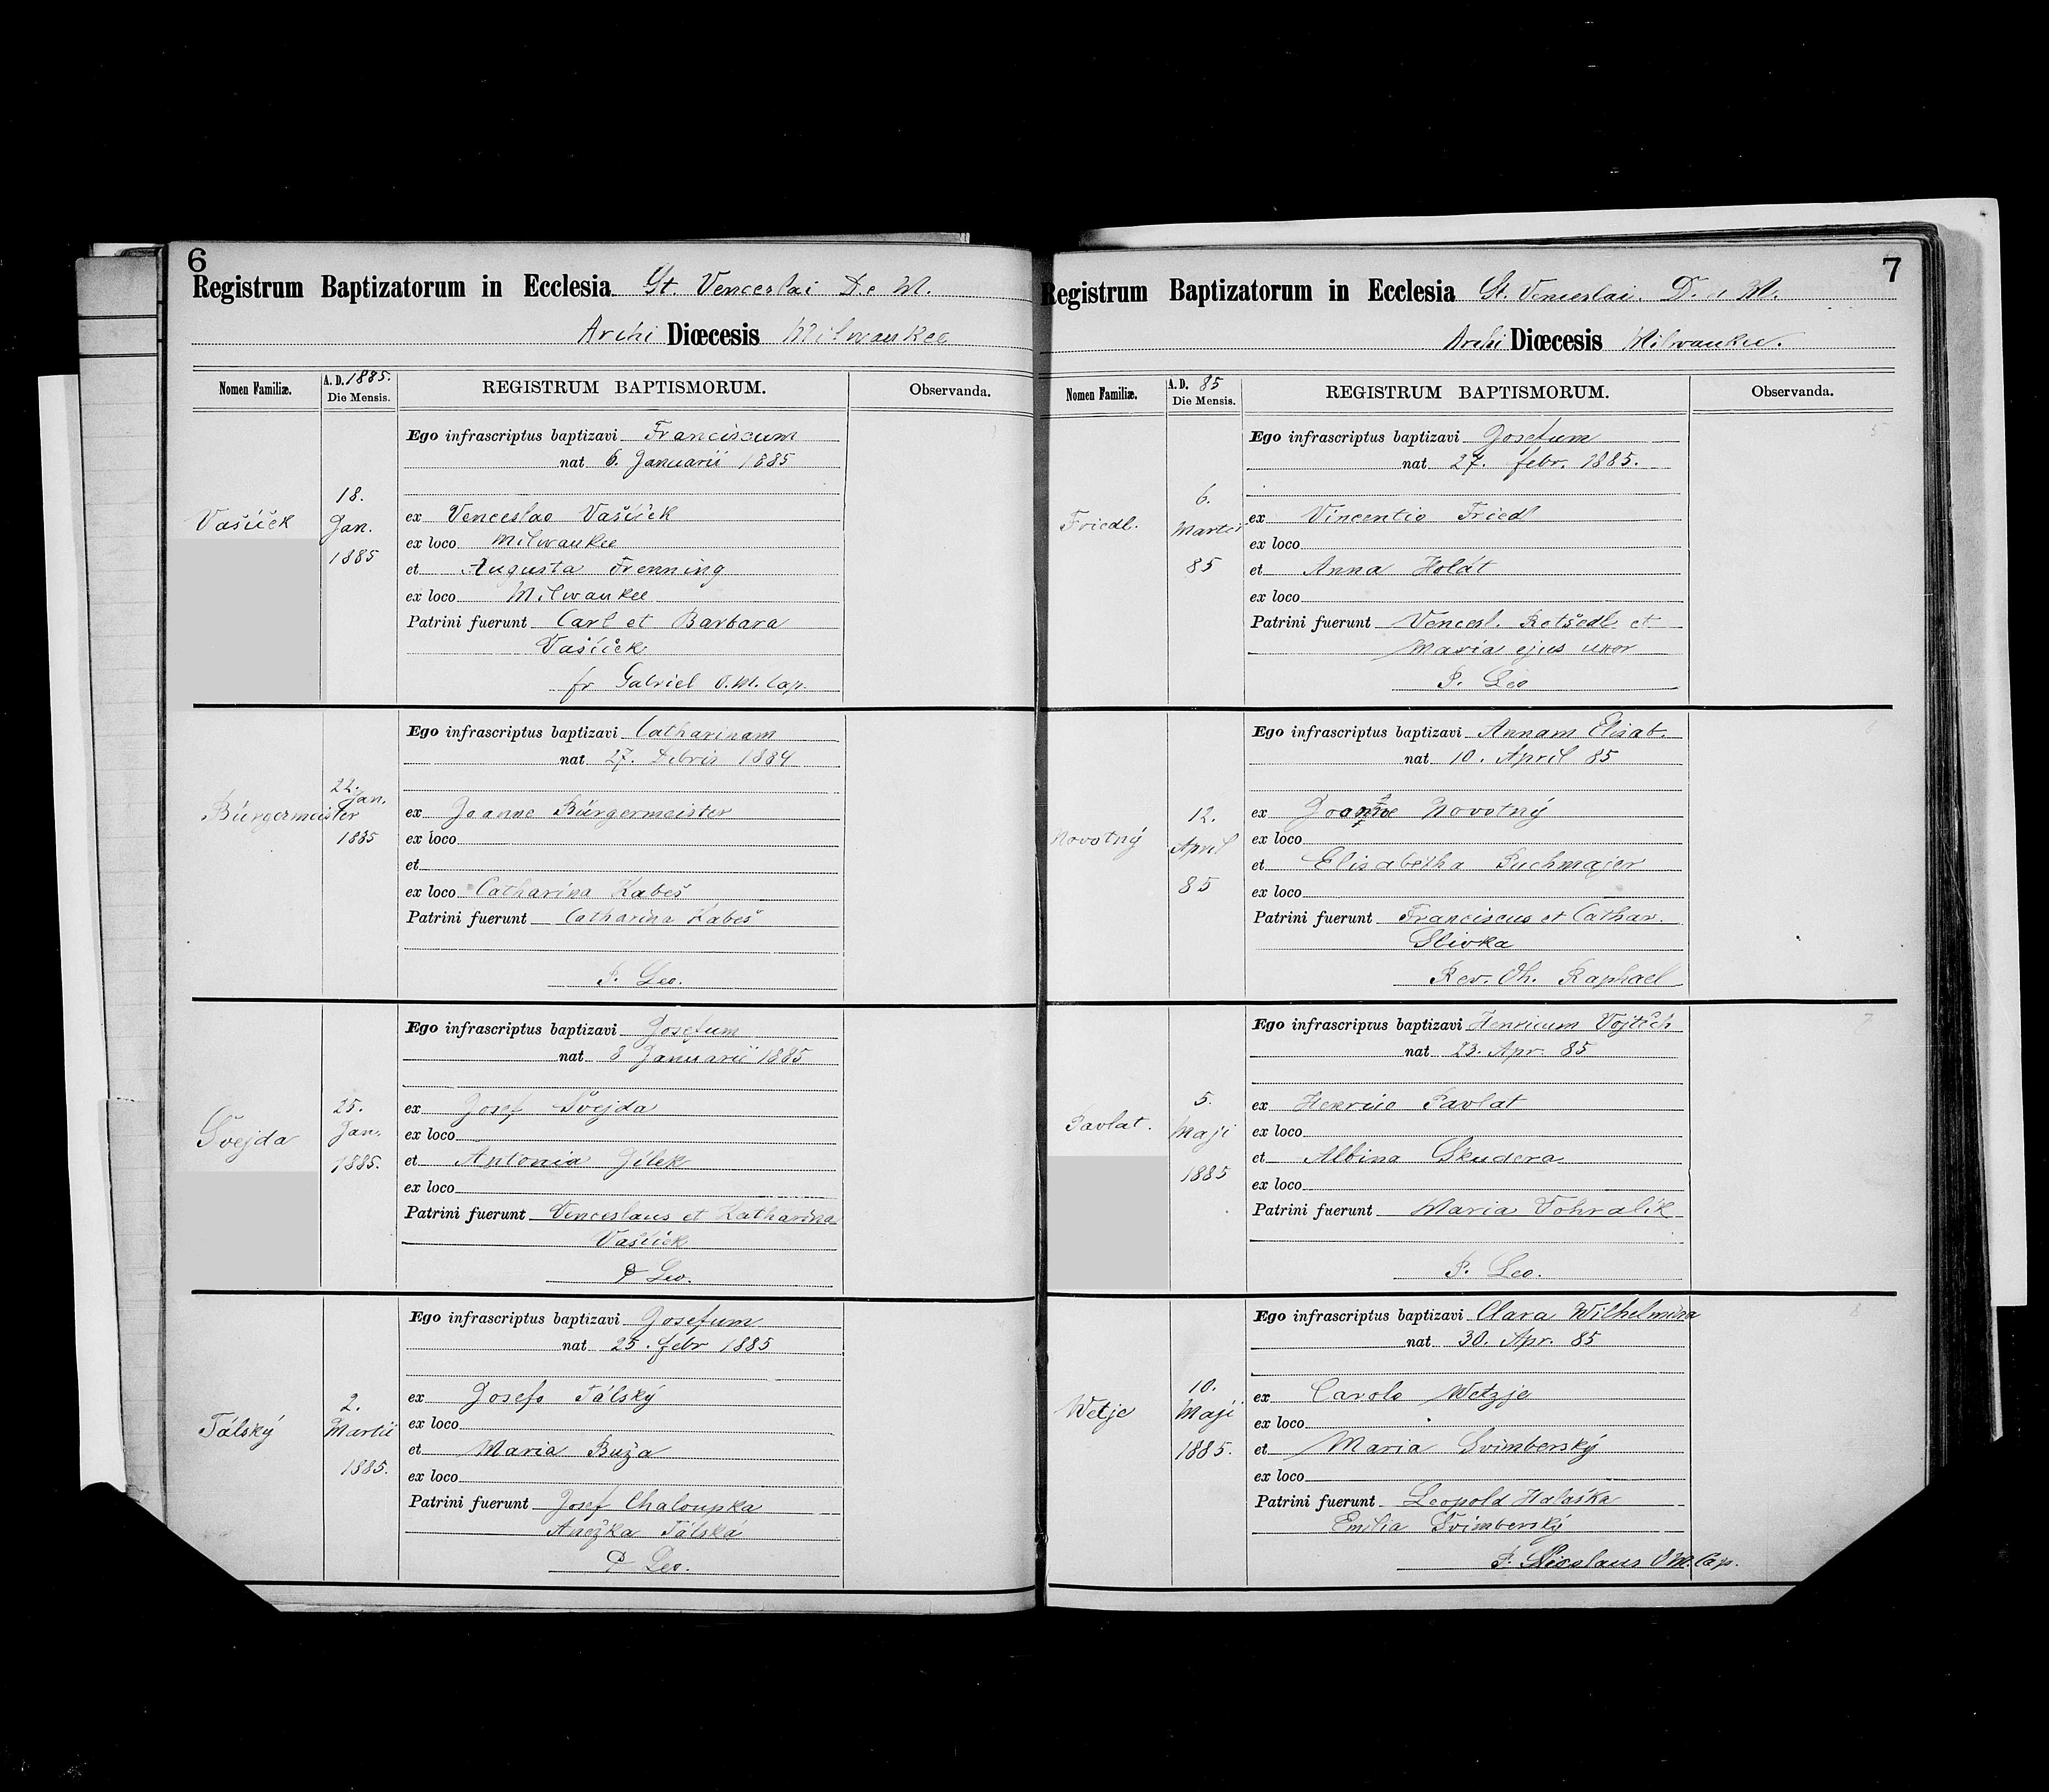 6
Registrum Baptizatorum in Ecclesia St. Venceslai D. e M.
Archi Diœcesis Milwaukee
Nomen Familiæ. A. D. 1885. Die Mensis. REGISTRUM BAPTISMORUM. Observanda.
Vašíček
18.
Jan.
1885
Ego infrascriptus baptizavi Franciscum
nat 6. Januarii 1885
ex Venceslao Vašíček
ex loco Milwaukee
et Augusta Frenning
ex loco Milwaukee
Patrini fuerunt Carl et Barbara
Vašíček
fr Gabriel O.M.Cap.
Bürgermeister
22.
Jan.
1885
Ego infrascriptus baptizavi Catharinam
nat 27. Debris 1884
ex Joanne Bürgermeister
ex loco
et
ex loco Catharina Kabeš
Patrini fuerunt Catharina Kabeš
P. Leo.
Švejda
25.
Jan.
1885.
Ego infrascriptus baptizavi Josefum
nat 8 Januarii 1885
ex Josef Švejda
ex loco
et Antonia Jílek
ex loco
Patrini fuerunt Venceslaus et Katharina
Vašíček
P Leo.
Tálský
2.
Martii
1885.
Ego infrascriptus baptizavi Josefum
nat 25. febr 1885
ex Josefo Tálský
ex loco
et Maria Buža
ex loco
Patrini fuerunt Josef Chaloupka
Anežka Tálská
P Leo.
7
Registrum Baptizatorum in Ecclesia St. Venceslai. D. e M.
Archi Diœcesis Milwaukee.
Nomen Familiæ. A. D. 85 Die Mensis. REGISTRUM BAPTISMORUM. Observanda.
Friedl.
6.
Martii
85
Ego infrascriptus baptizavi Josefum
nat 27. febr. 1885.
ex Vincentio Friedl
ex loco
et Anna Holát
ex loco
Patrini fuerunt Vencesl. Rotšedl et
Maria ejus uxor
P. Leo
Novotný
12.
April
85
Ego infrascriptus baptizavi Annam Elisab.
nat 10. April 85
ex Novotný
ex loco
et Elisabetha Puchmajer
ex loco
Patrini fuerunt Franciscus et Cathar.
Slivka
Rev. Th. Raphael
Pavlat.
5.
Maji
1885
Ego infrascriptus baptizavi Henricum Vojtěch
nat 23. Apr. 85
ex Henrico Pavlat
ex loco
et Albina Skudera
ex loco
Patrini fuerunt Maria Vohralík
P. Leo.
Wetje
10.
Maji
1885.
Ego infrascriptus baptizavi Clara Wilhelmina
nat 30. Apr. 85
ex Carolo Wetzje
ex loco
et Maria Svimberský
ex loco
Patrini fuerunt Leopold Halaška
Emilia Svimberský
P. Nicolaus O.M.Cap.